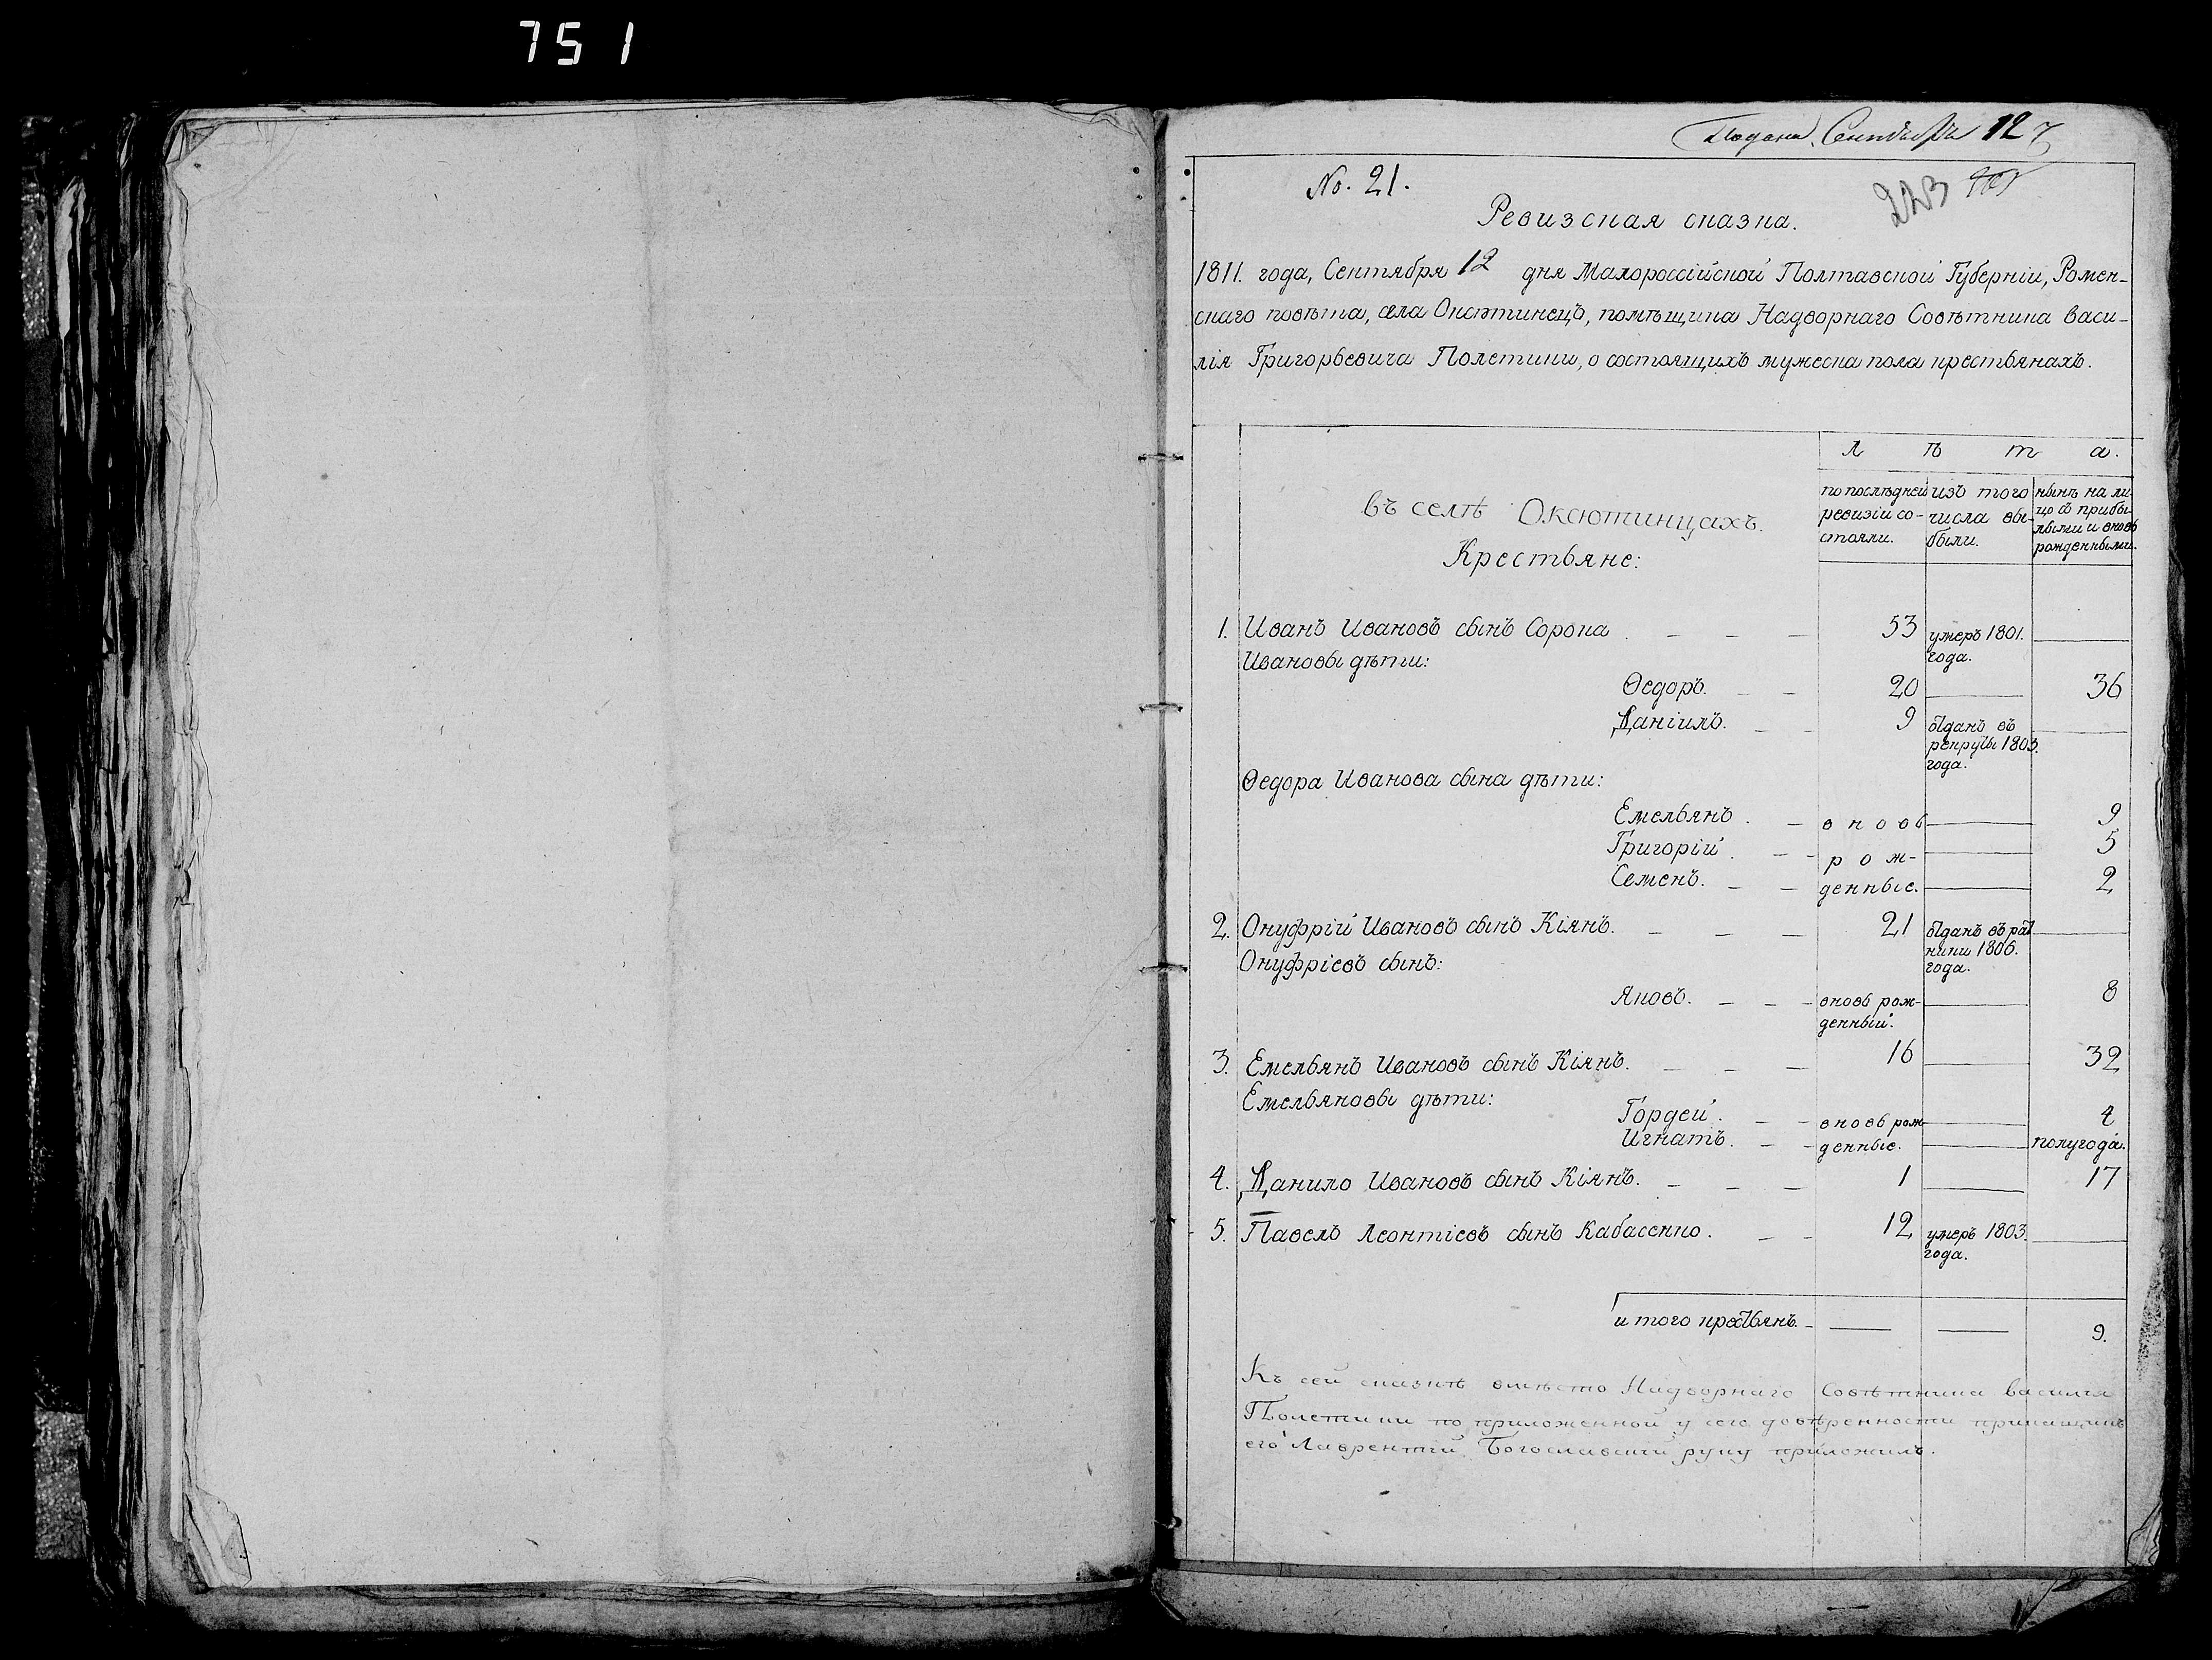 751
Подана Сентября 12
No. 21.
223
Ревизская сказка.
1811. года, Сентября 12 дня Малороссійской Полтавской Губерніи, Ромен-
скаго повѣта, села Оксютинецъ, помѣщика Надворнаго Совѣтника Васи-
лія Григорьевича Полетики, о состоящихъ мужеска пола крестьянахъ.
Л ѣ т а.
въ селѣ Оксютинцахъ.
Крестьяне:
по послѣдней ревизіи со- стояли.
изъ того числа вы- были.
нынѣ на ли- цо съ прибы- лыми и вновь рожденными.
1. Иванъ Ивановъ сынъ Сорока . 53 умеръ 1801. года.
Ивановы дѣти:
Ѳедоръ. 20 36
Даніилъ. 9 отданъ въ рекруты 1803. года.
Ѳедора Иванова сына дѣти:
Емельянъ . вновь 9
Григорій . рож- 5
Семенъ. денные. 2
2. Онуфрій Ивановъ сынъ Кіянъ. 21 отданъ въ рат ники 1806. года.
Онуфріевъ сынъ:
Яковъ. вновь рож- денный. 8
3. Емельянъ Ивановъ сынъ Кіянъ. 16 32
Емельяновы дѣти:
Гордей . вновь рож 4
Игнатъ. денные. полугода.
4. Данило Ивановъ сынъ Кіянъ. 1 17
5. Павелъ Леонтіевъ сынъ Кабасенко. 12 умеръ 1803. года.
итого крестьянъ. 9.
Къ сей сказкѣ вмѣсто Надворнаго Совѣтника Василія
Полетики по приложенной у сего довѣренности прикащикъ
его Лаврентій Богославскій руку приложилъ.